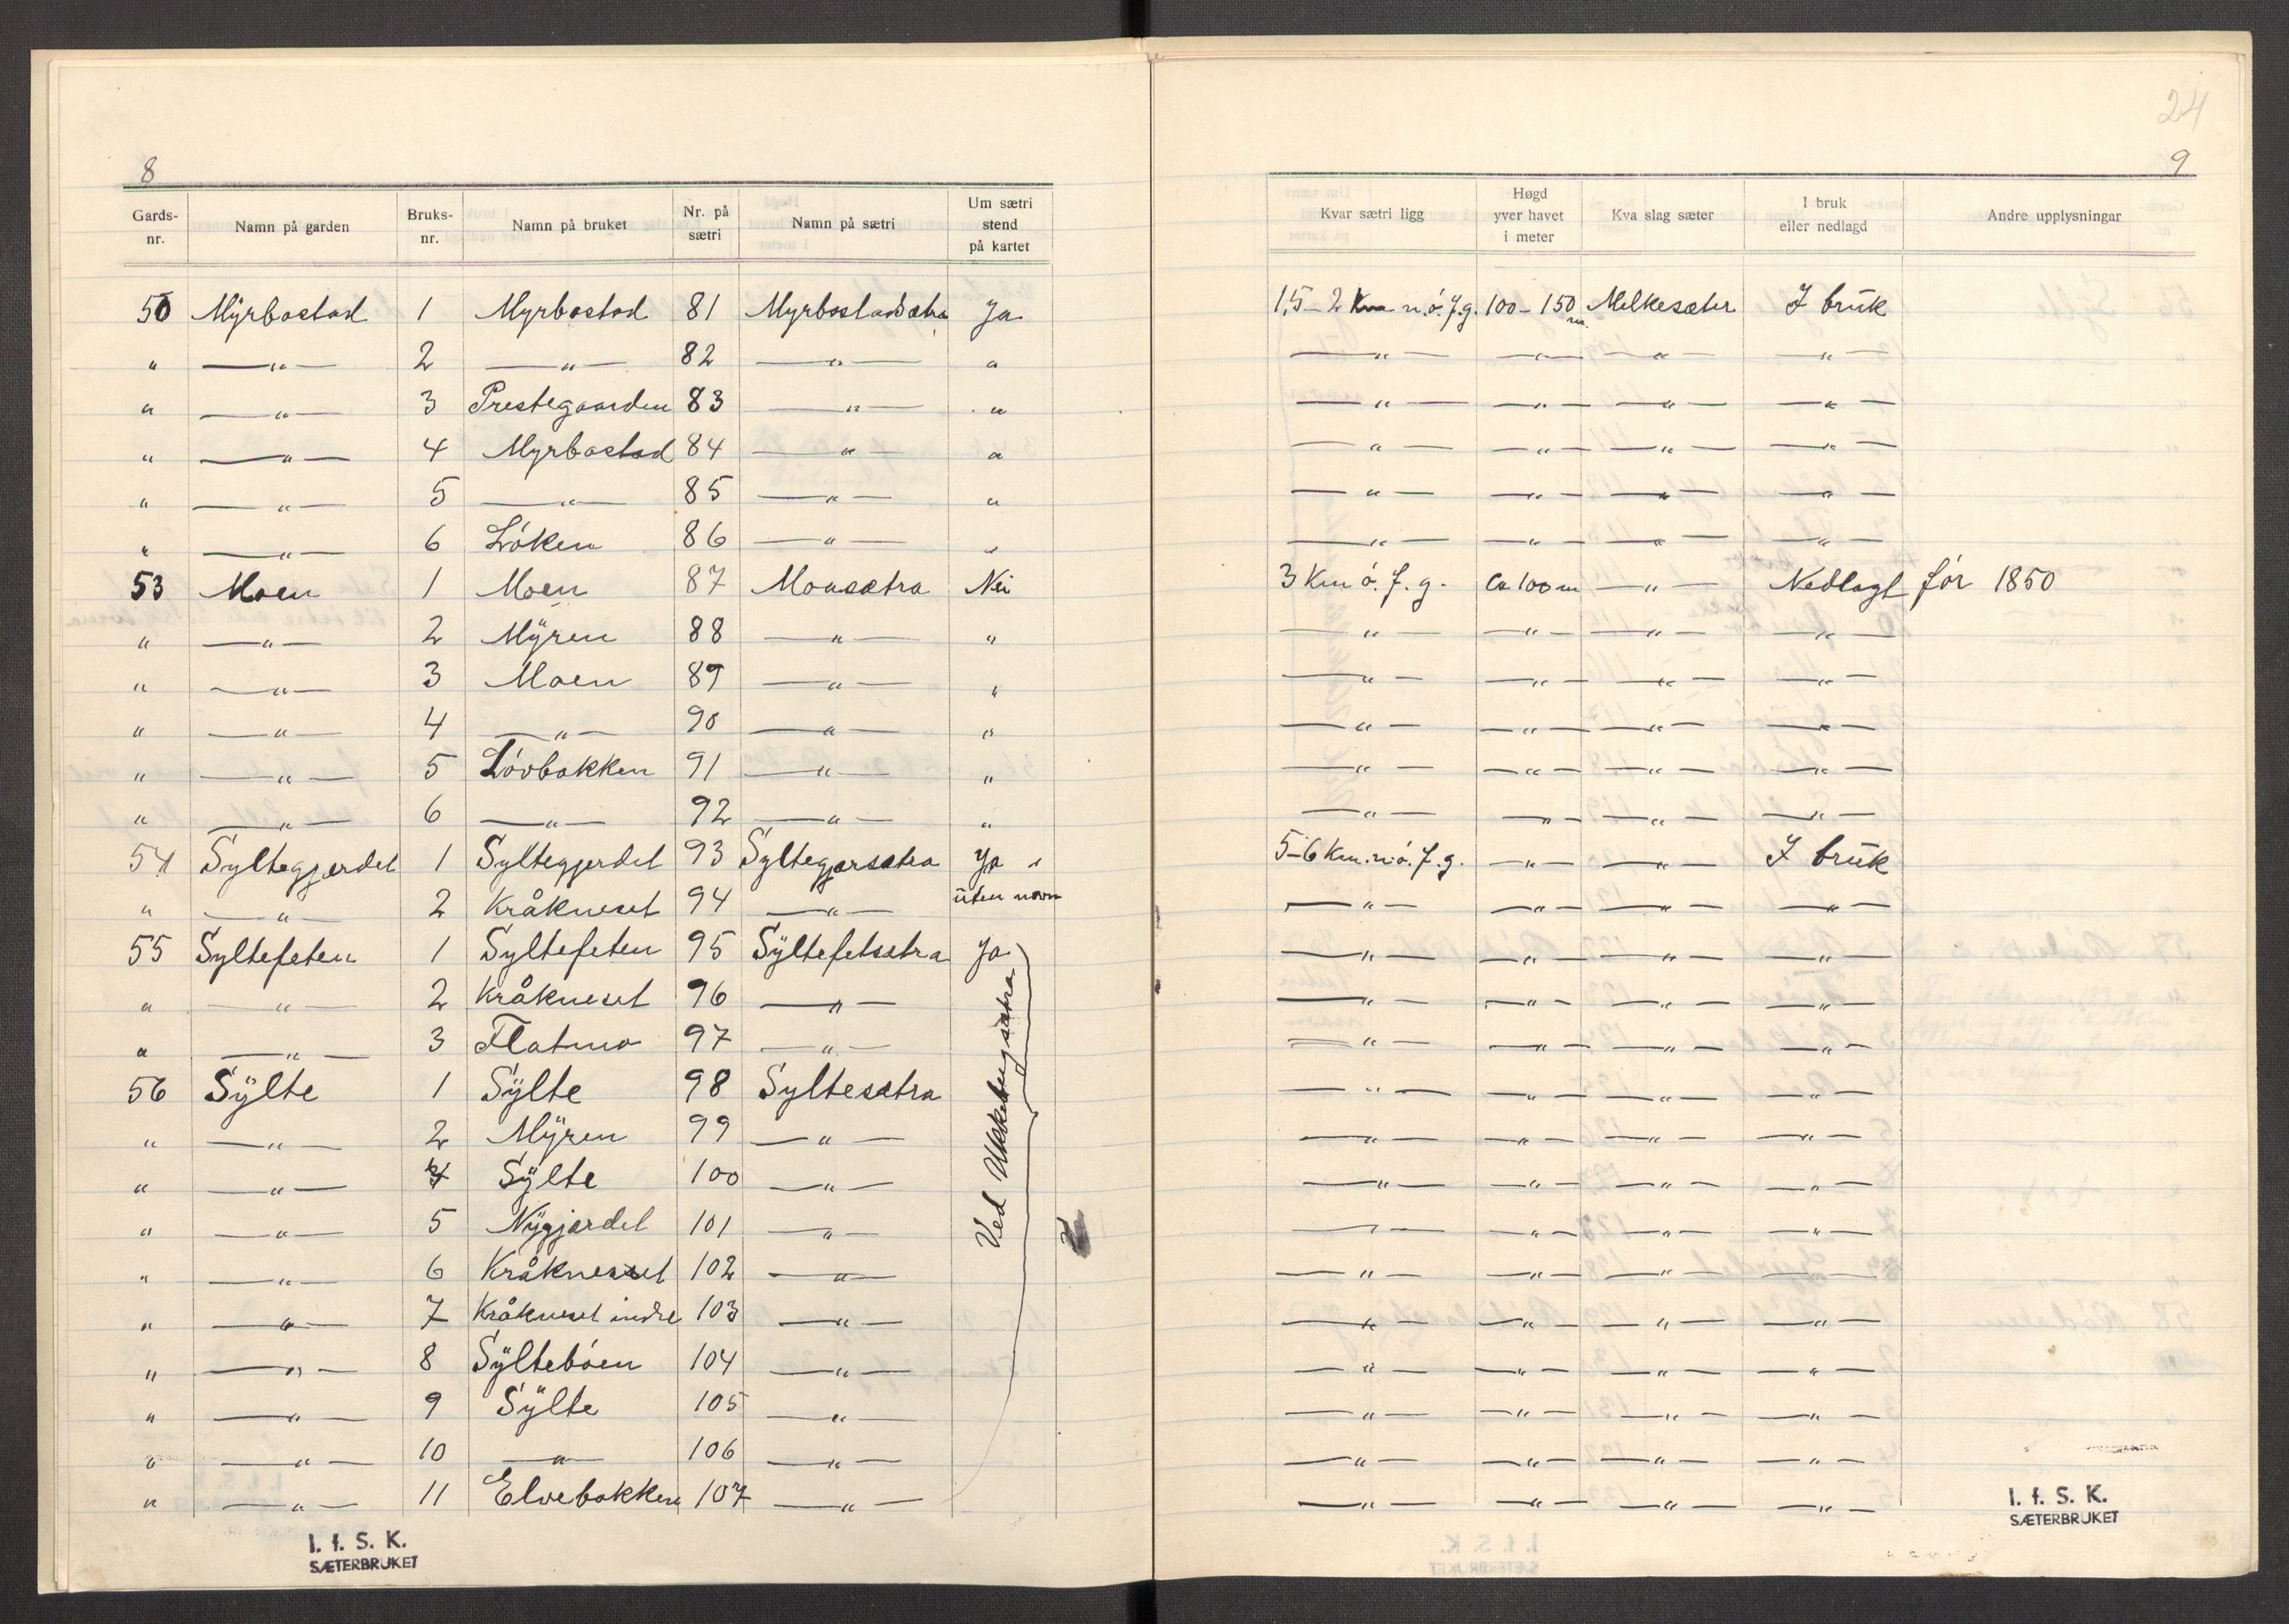 24
8
9
Gards-nr. Namn på garden Bruks-nr. Namn på bruket Nr. på sætri Namn på sætri Um sætri stend på kartet Kvar sætri ligg Høgd yver havet i meter Kva slag sæter I bruk eller nedlagd Andre upplysningar
50 Myrbostad 1 Myrbostad 81 Myrbostadsætra Ja 1,5-2 Km n.ö.f.g. 100-150 m. Melkesæter I brük
" —"— 2 —"— 82 —"— " —"— —"— —"— —"—
" —"— 3 Prestegaarden 83 —"— " —"— —"— —"— —"—
" —"— 4 Myrbostad 84 —"— " —"— —"— —"— —"—
" —"— 5 —"— 85 —"— " —"— —"— —"— —"—
" —"— 6 Löken 86 —"— " —"— —"— —"— —"—
53 Moen 1 Moen 87 Moasætra Nei 3 Km ö. f. g. ca 100 m —"— Nedlagt för 1850
" —"— 2 Mÿren 88 —"— " —"— —"— —"— —"—
" —"— 3 Moen 89 —"— " —"— —"— —"— —"—
" —"— 4 —"— 90 —"— " —"— —"— —"— —"—
" —"— 5 Lövbakken 91 —"— " —"— —"— —"— —"—
" —"— 6 —"— 92 —"— " —"— —"— —"— —"—
54 Syltegjerdet 1 Syltegjerdet 93 Syltegjarsætra Ja " 5-6 Km. n.ö. f. g. —"— —"— I brük
" —"— 2 Kråkneset 94 —"— üten navn —"— —"— —"— —"—
55 Syltefeten 1 Syltefeten 95 Sÿltefetsætra Ja —"— —"— —"— —"—
" —"— 2 Kråkneset 96 —"— —"— —"— —"— —"—
" —"— 3 Flatmo 97 —"— —"— —"— —"— —"—
56 Sÿlte 1 Sÿlte 98 Syltesætra —"— —"— —"— —"—
" —"— 2 Mÿren 99 —"— —"— —"— —"— —"—
" —"— 4 Sÿlte 100 —"— —"— —"— —"— —"—
" —"— 5 Nÿgjerdet 101 —"— —"— —"— —"— —"—
" —"— 6 Kråkneset 102 —"— —"— —"— —"— —"—
" —"— 7 Kråkneset indre 103 —"— —"— —"— —"— —"—
" —"— 8 Sÿlteböen 104 —"— —"— —"— —"— —"—
" —"— 9 Sÿlte 105 —"— —"— —"— —"— —"—
" —"— 10 —"— 106 —"— —"— —"— —"— —"—
" —"— 11 Elvebakken 107 —"— —"— —"— —"— —"—
Ved
I. f. S. K.
SÆTERBRUKET
I. f. S. K.
SÆTERBRUKET